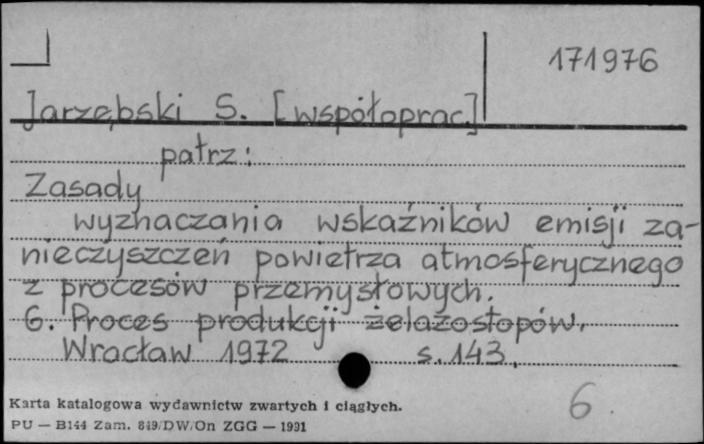 171976
Jarzębski S. [współoprac]
patrz:
Zasady
wyznaczania wskaźników emisji za-
nieczyszczeń powietrza atmosferycznego
z procesów przemysłowych.
6. Proces produkcji żelazostopów.
Wracław 1972 s. 143.
6.
Karta katalogowa wydawnictw zwartych i ciągłych.
PU — B144 Zam. 849/DW/On ZGG — 1991